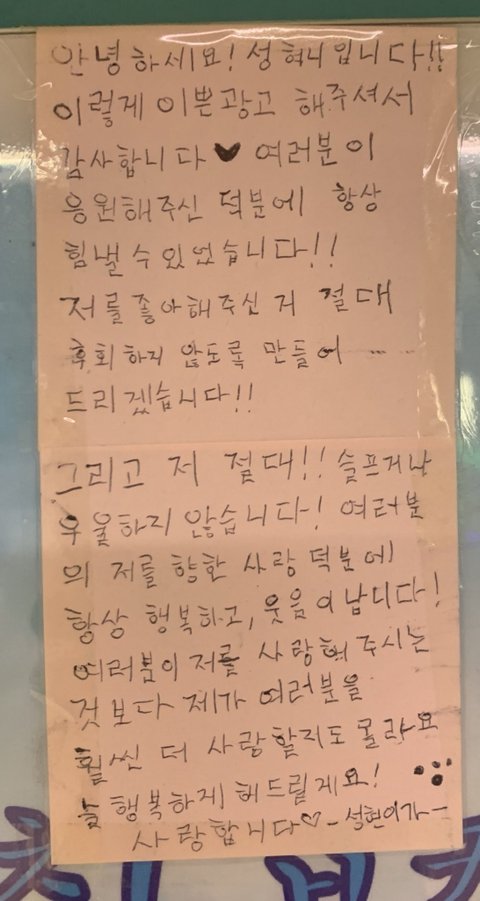 안녕하세요! 성혀니입니다!!
이렇게 이쁜광고 해주셔서
감사합니다♥ 여러분이
응원해주신 덕분에 항상
힘낼 수있었습니다!!
저를좋아해주신 거 절대
후회하지 않도록 만들어
드리겠습니다!!
그리고 저 절대!! 슬프거나
우울하지 않습니다! 여러분
의 저를 향한 사랑 덕분에
항상 행복하고, 웃음이납니다!
여러분이 저를 사랑해 주시는
것보다 제가 여러분을
훨씬 더 사랑할지도 몰라요
늘 행복하게 해드릴게요!
사랑합니다♡ -성현이가-